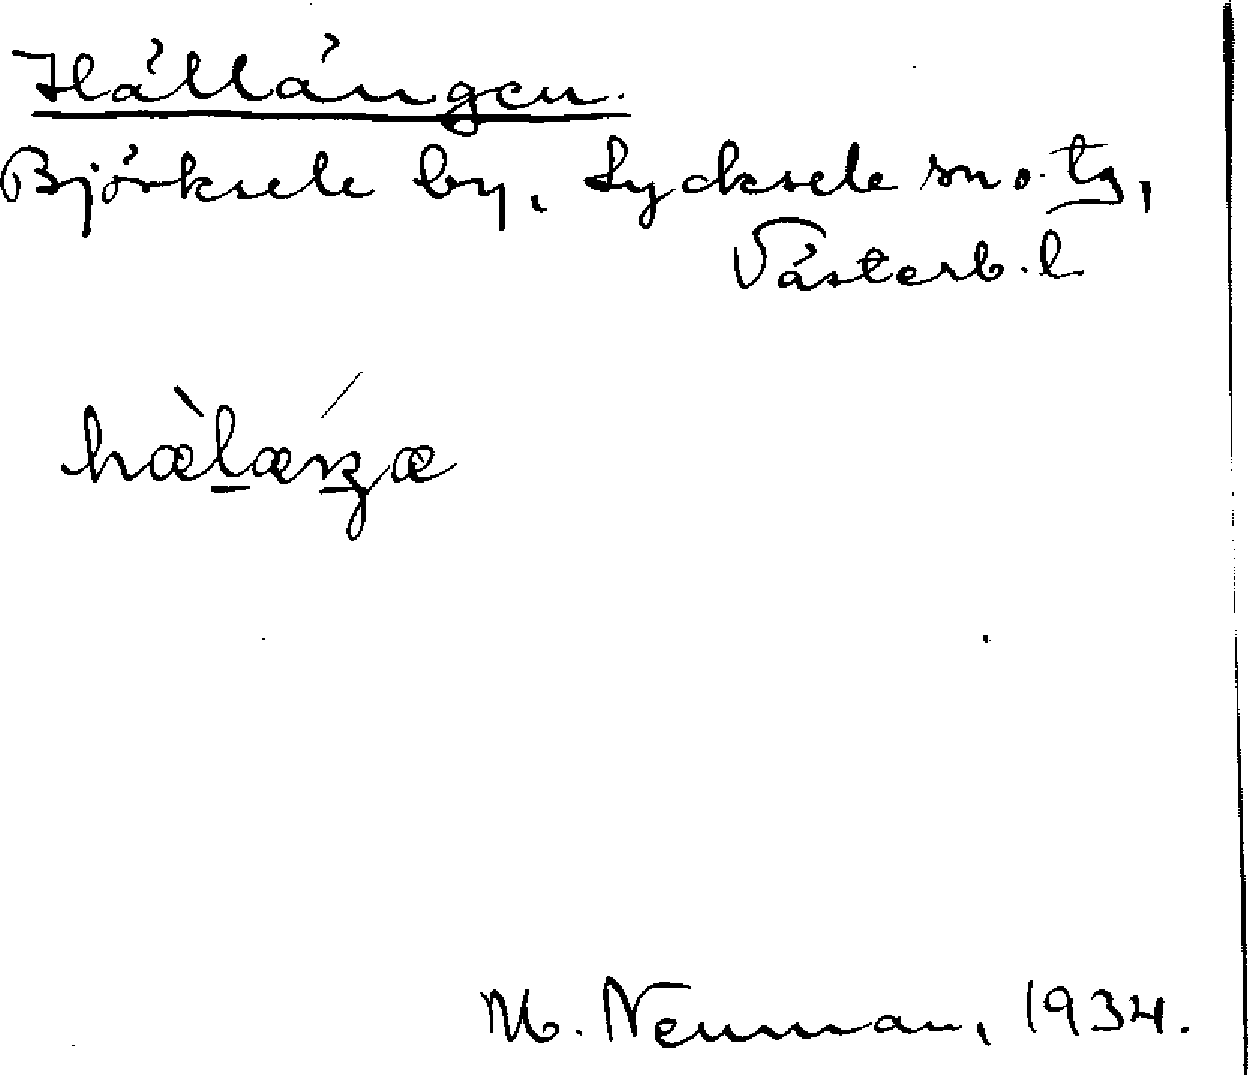 Hällängen.
Björksele by, Lycksele sn o. tg,
Västerb. l
M. Neuman, 1934.